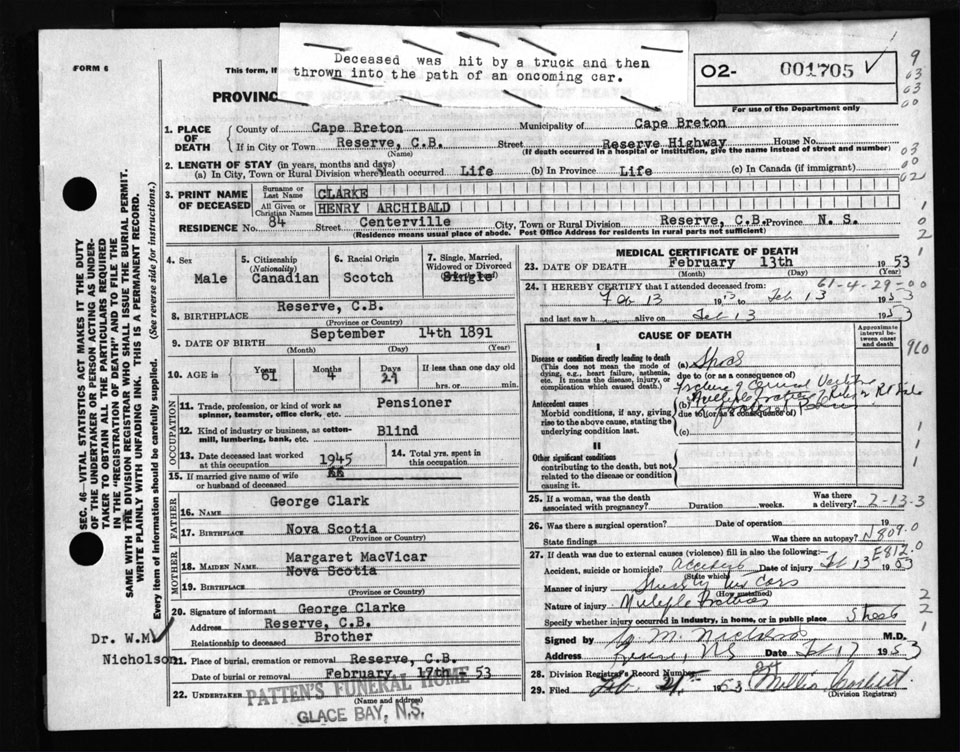 Deceased was hit by a truck and then
thrown into the path of an oncoming car.
FORM 6
This form, if
PROVINC
02- 001705 ✓
For use of the Department only
1. PLACE OF DEATH
County of Cape Breton Municipality of Cape Breton
If in City or Town Reserve, C.B. Street Reserve Highway House No.
(Name) (If death occurred in a hospital or institution, give the name instead of street and number)
2. LENGTH OF STAY (in years, months and days)
(a) In City, Town or Rural Division where death occurred Life (b) In Province Life (c) In Canada (if immigrant)
3. PRINT NAME OF DECEASED
Surname or Last Name CLARKE
All Given or Christian Names HENRY ARCHIBALD
RESIDENCE No. 84 Street Centerville City, Town or Rural Division Reserve, C.B. Province N. S.
(Residence means usual place of abode. Post Office Address for residents in rural parts not sufficient)
4. Sex
Male
5. Citizenship (Nationality)
Canadian
6. Racial Origin
Scotch
7. Single, Married, Widowed or Divorced
Single
8. BIRTHPLACE Reserve, C.B.
(Province or Country)
9. DATE OF BIRTH September 14th 1891
(Month) (Day) (Year)
10. AGE in Years 61 Months 4 Days 29 If less than one day old
hrs. or min.
OCCUPATION
11. Trade, profession, or kind of work as spinner, teamster, office clerk, etc. Pensioner
12. Kind of industry or business, as cotton-mill, lumbering, bank, etc. Blind
13. Date deceased last worked at this occupation 1945
14. Total yrs. spent in this occupation
15. If married give name of wife or husband of deceased
FATHER
16. NAME George Clark
17. BIRTHPLACE Nova Scotia
(Province or Country)
MOTHER
18. MAIDEN NAME Margaret MacVicar
19. BIRTHPLACE Nova Scotia
(Province or Country)
20. Signature of informant George Clarke
Address Reserve, C.B.
Relationship to deceased Brother
21. Place of burial, cremation or removal Reserve, C.B.
Date of burial or removal February 17th - 53
22. UNDERTAKER PATTEN'S FUNERAL HOME
(Name and address)
GLACE BAY, N.S.
MEDICAL CERTIFICATE OF DEATH
23. DATE OF DEATH February 13th 1953
(Month) (Day) (Year)
61-4-29=00
24. I HEREBY CERTIFY that I attended deceased from:
Feb 13 19 to Feb 13 1953
and last saw h alive on Feb 13 1953
CAUSE OF DEATH
Approximate interval between onset and death
I
Disease or condition directly leading to death
(This does not mean the mode of dying, e.g., heart failure, asthenia, etc. It means the disease, injury, or complication which caused death.)
(a) Shock
due to (or as a consequence of)
Fracture of Cervical
Antecedent causes
Morbid conditions, if any, giving rise to the above cause, stating the underlying condition last.
(b) Multiple
due to (or as a consequence of)
(c)
II
Other significant conditions
contributing to the death, but not related to the disease or condition causing it.
25. If a woman, was the death associated with pregnancy? Duration weeks. Was there a delivery? 2-13-3
26. Was there a surgical operation? Date of operation 19
State findings Was there an autopsy? N809.0
27. If death was due to external causes (violence) fill in also the following:— E812.0
Accident, suicide or homicide? Accident Date of injury Feb 13 1953
(State which)
Manner of injury Struck by two Cars
(How sustained)
Nature of injury Multiple Fractures
Specify whether injury occurred in industry, in home, or in public place Street
Signed by W. M. Nicholson M.D.
Address Reserve, NS Date Feb 17 1953
28. Division Registrar's Record Number
29. Filed Feb 21 1953
(Division Registrar)
SEC. 46—VITAL STATISTICS ACT MAKES IT THE DUTY
OF THE UNDERTAKER OR PERSON ACTING AS UNDER-
TAKER TO OBTAIN ALL THE PARTICULARS REQUIRED
IN THE "REGISTRATION OF DEATH" AND TO FILE THE
SAME WITH THE DIVISION REGISTRAR WHO SHALL ISSUE THE BURIAL PERMIT.
WRITE PLAINLY WITH UNFADING INK. THIS IS A PERMANENT RECORD.
Every item of information should be carefully supplied. (See reverse side for instructions.)
Dr. W.M.
Nicholson
9
03
03
00
03
00
02
1
0
2
960
1
1
1
2
2
1